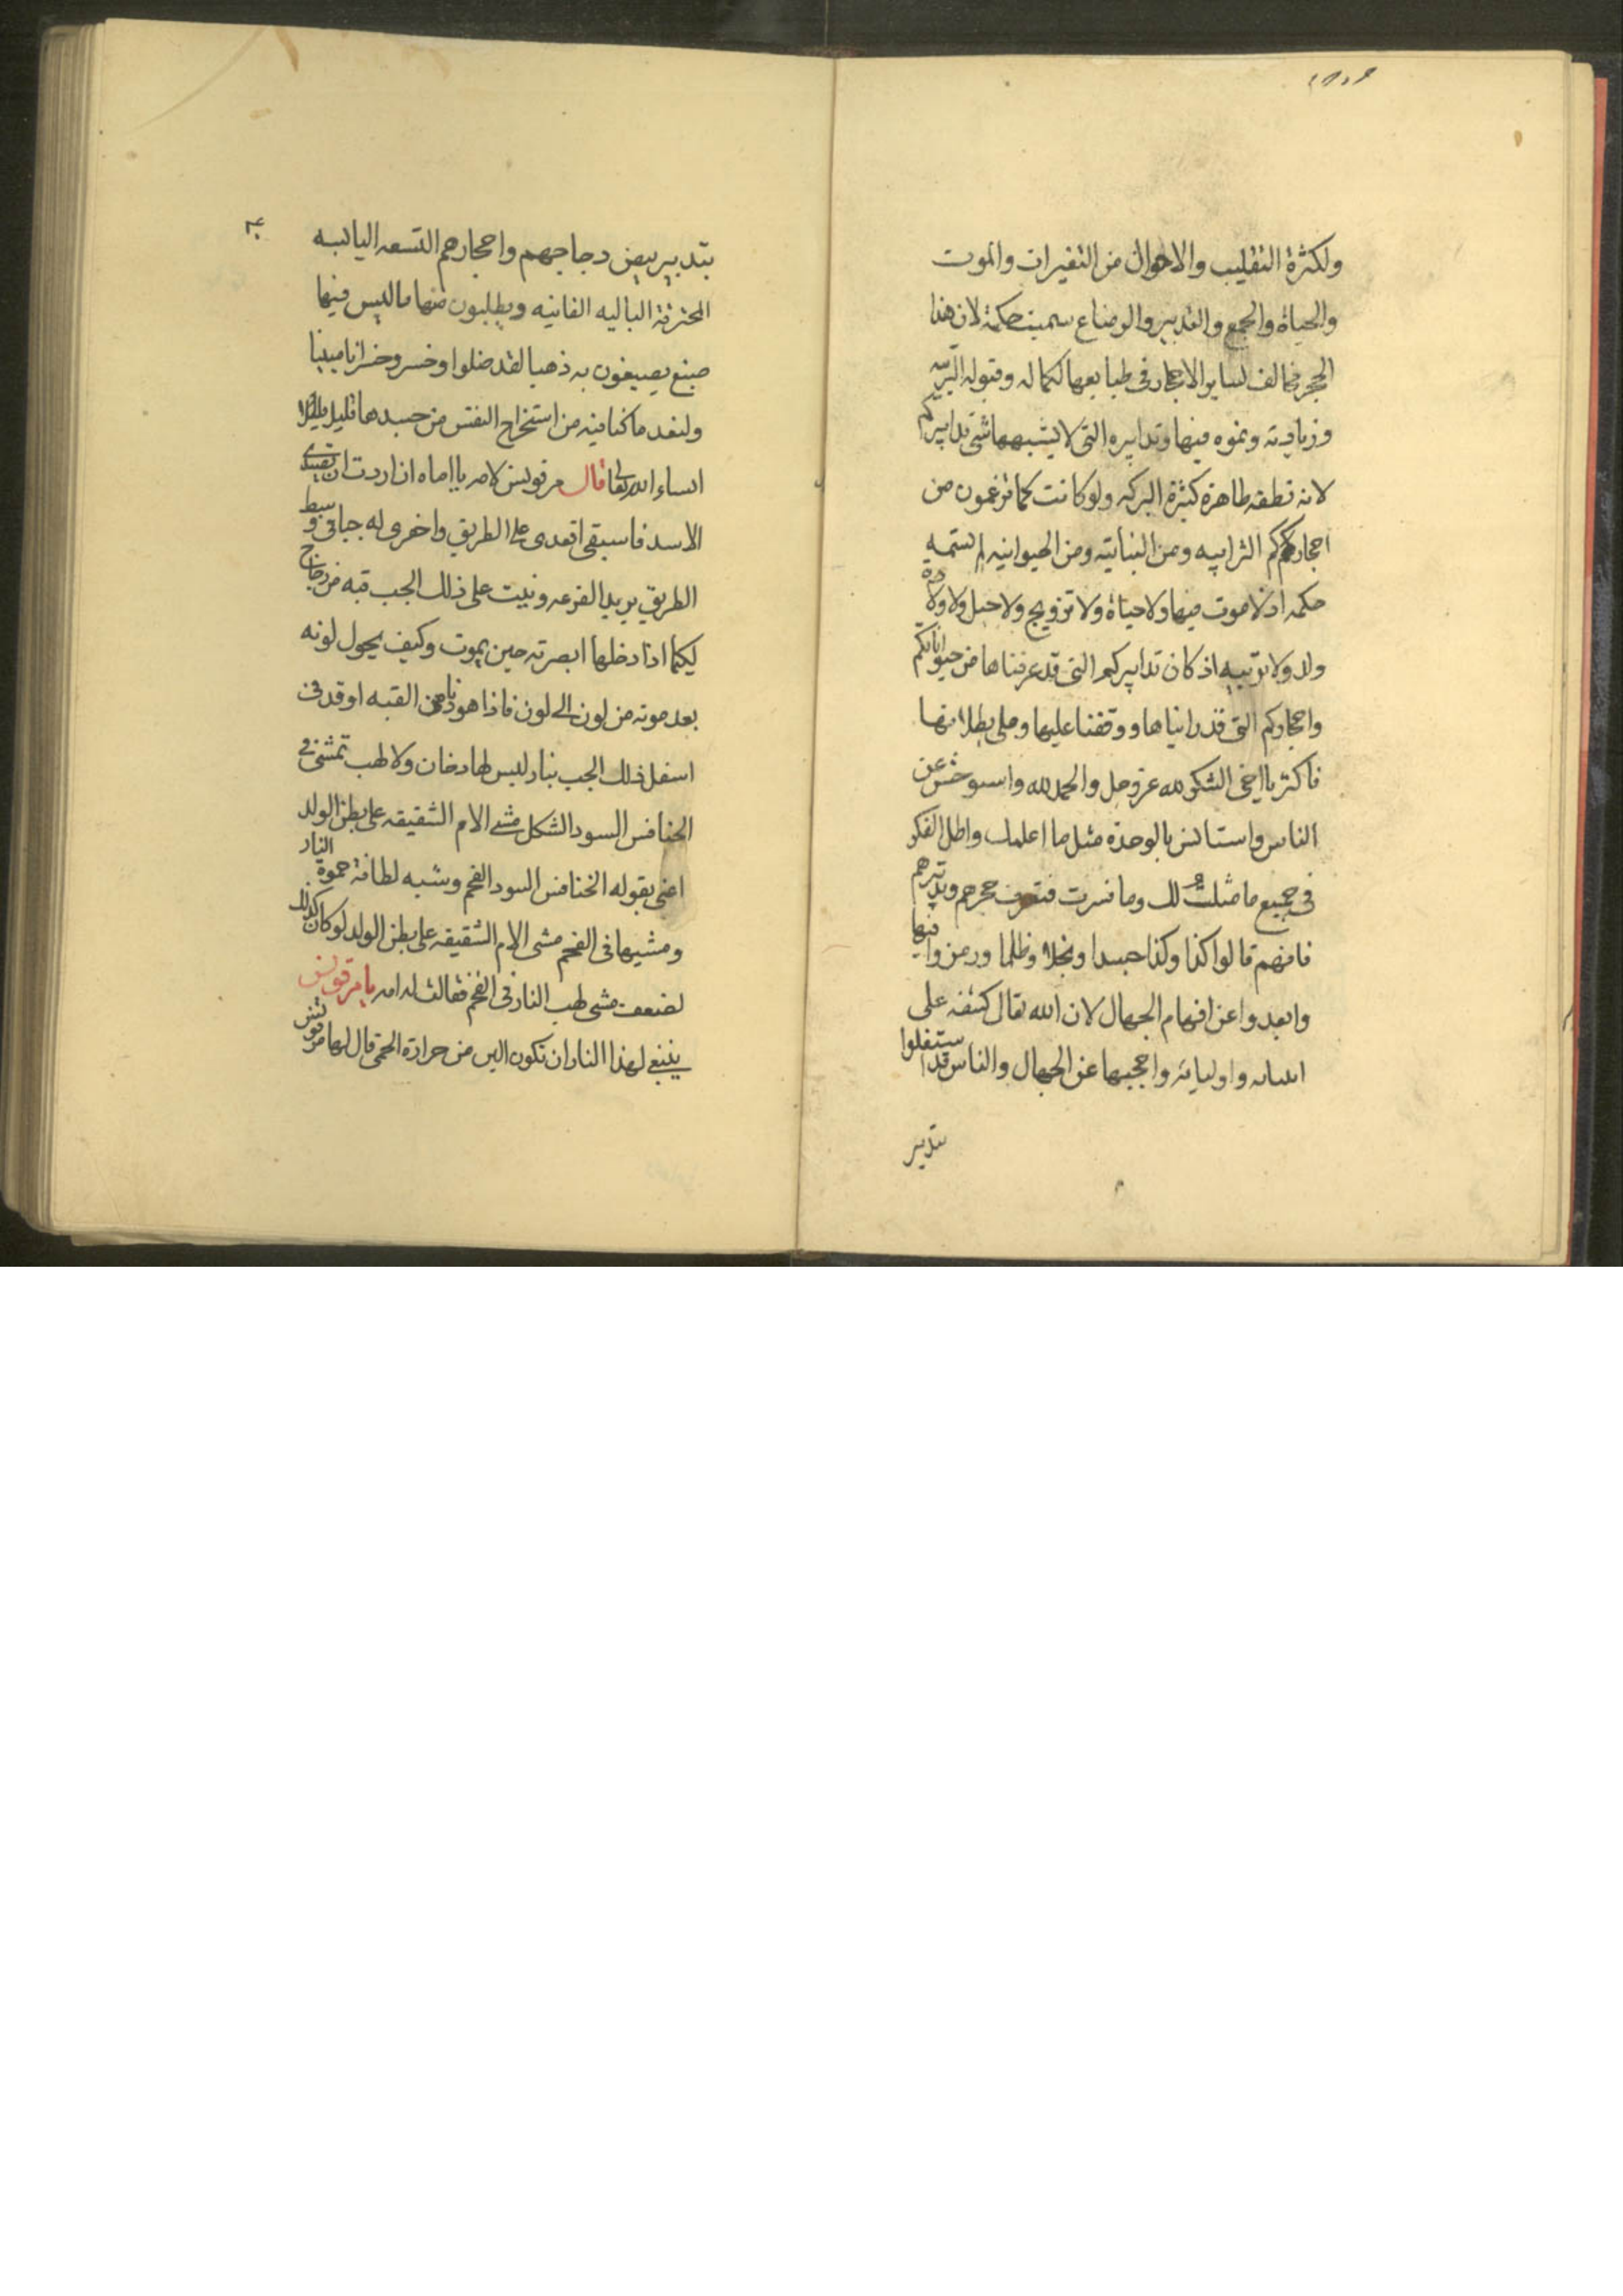 ولكثرة التقليب والاحوال من التغيرات والموت
والحياة والجمع والتدبير والرضاع سميت حكمة لان هذا
الحجر مخالف لساير الاحجار فى طبايعها لكماله وقبوله التربيه
وزيادته ونموه فيها وتدابيره التى لا يشبهها شى تدابيركم
لانه نطفه طاهرة كثيرة البركه ولو كانت كما تزعمون من
احجاركم الترابيه ومن النباتيه ومن الحيوانيه لم استمه
حكمه اذ لا موت فيها ولا حياة ولا تزويج ولا حبل ولا ولادة
ولد ولا تربيه اذ كان تدابيركم التى قد عرفناها من حيواناتكم
واحجاركم التى قد راٮناها ووقفنا عليها وعلى بطلانها
فاكثر يا اخى الشكر لله عز وجل والحمد لله واستوحش عن
الناس واستانس بالوحدة مثل ما اعلمك واطل الفكر
فى جميع ما مثلت لك وما فسرت فتعرف حجرهم وتدبيرهم
فانهم قالوا كذا وكذا حسدا وبخلا وظلما ورمزوا فيها
وابعدوا عن افهام الجهال لان الله تعالى كشفه على
انبيائه واوليائه واحجبها عن الجهال والناس قد استغلوا
بتدبير
٤٠
بتدبير بيض دجاجهم واحجارهم التسعه اليابسه
المحترقة الباليه الفانيه ويطلبون منها ما ليس فيها
صبغ يصبغون به ذهبا لقد ضلوا وخسروا خسرانا مبينا
ولنعد ما كنا فيه من استخراج النفس من جسدها قليل قليلا
انشاء الله تعالى قال مرقونس لامه يا اماه ان اردت ان تصيدى
الاسد فاسبقى اقعدى على الطريق واحفرى له جبا فى وسط
الطريق يريد القرعه وبنيت على ذلك الجب قبه من زجاج
ليكما اذا دخلها ابصرته حين يموت وكيف يحول لونه
بعد موته من لون الى لون فاذا هو ذاب من القبه اوقد فى
اسفل ذلك الجب بنار ليس لها دخان ولا لهب تمشى فى
الخنافس السود الشكل مشى الام الشقيقه على بطن الولد
اعنى بقوله الخنافس السود الفحم وشبه لطافة حموة النار
ومشيها فى الفحم مشى الام الشقيقه على بطن الولد لو كان كذلك
لضعف مشى لهب النار فى الفحم فقالت له امه يا مرقونس
ينبغى لهذا النار ان تكون الين من حرارة الحمى قال لها مرقونس